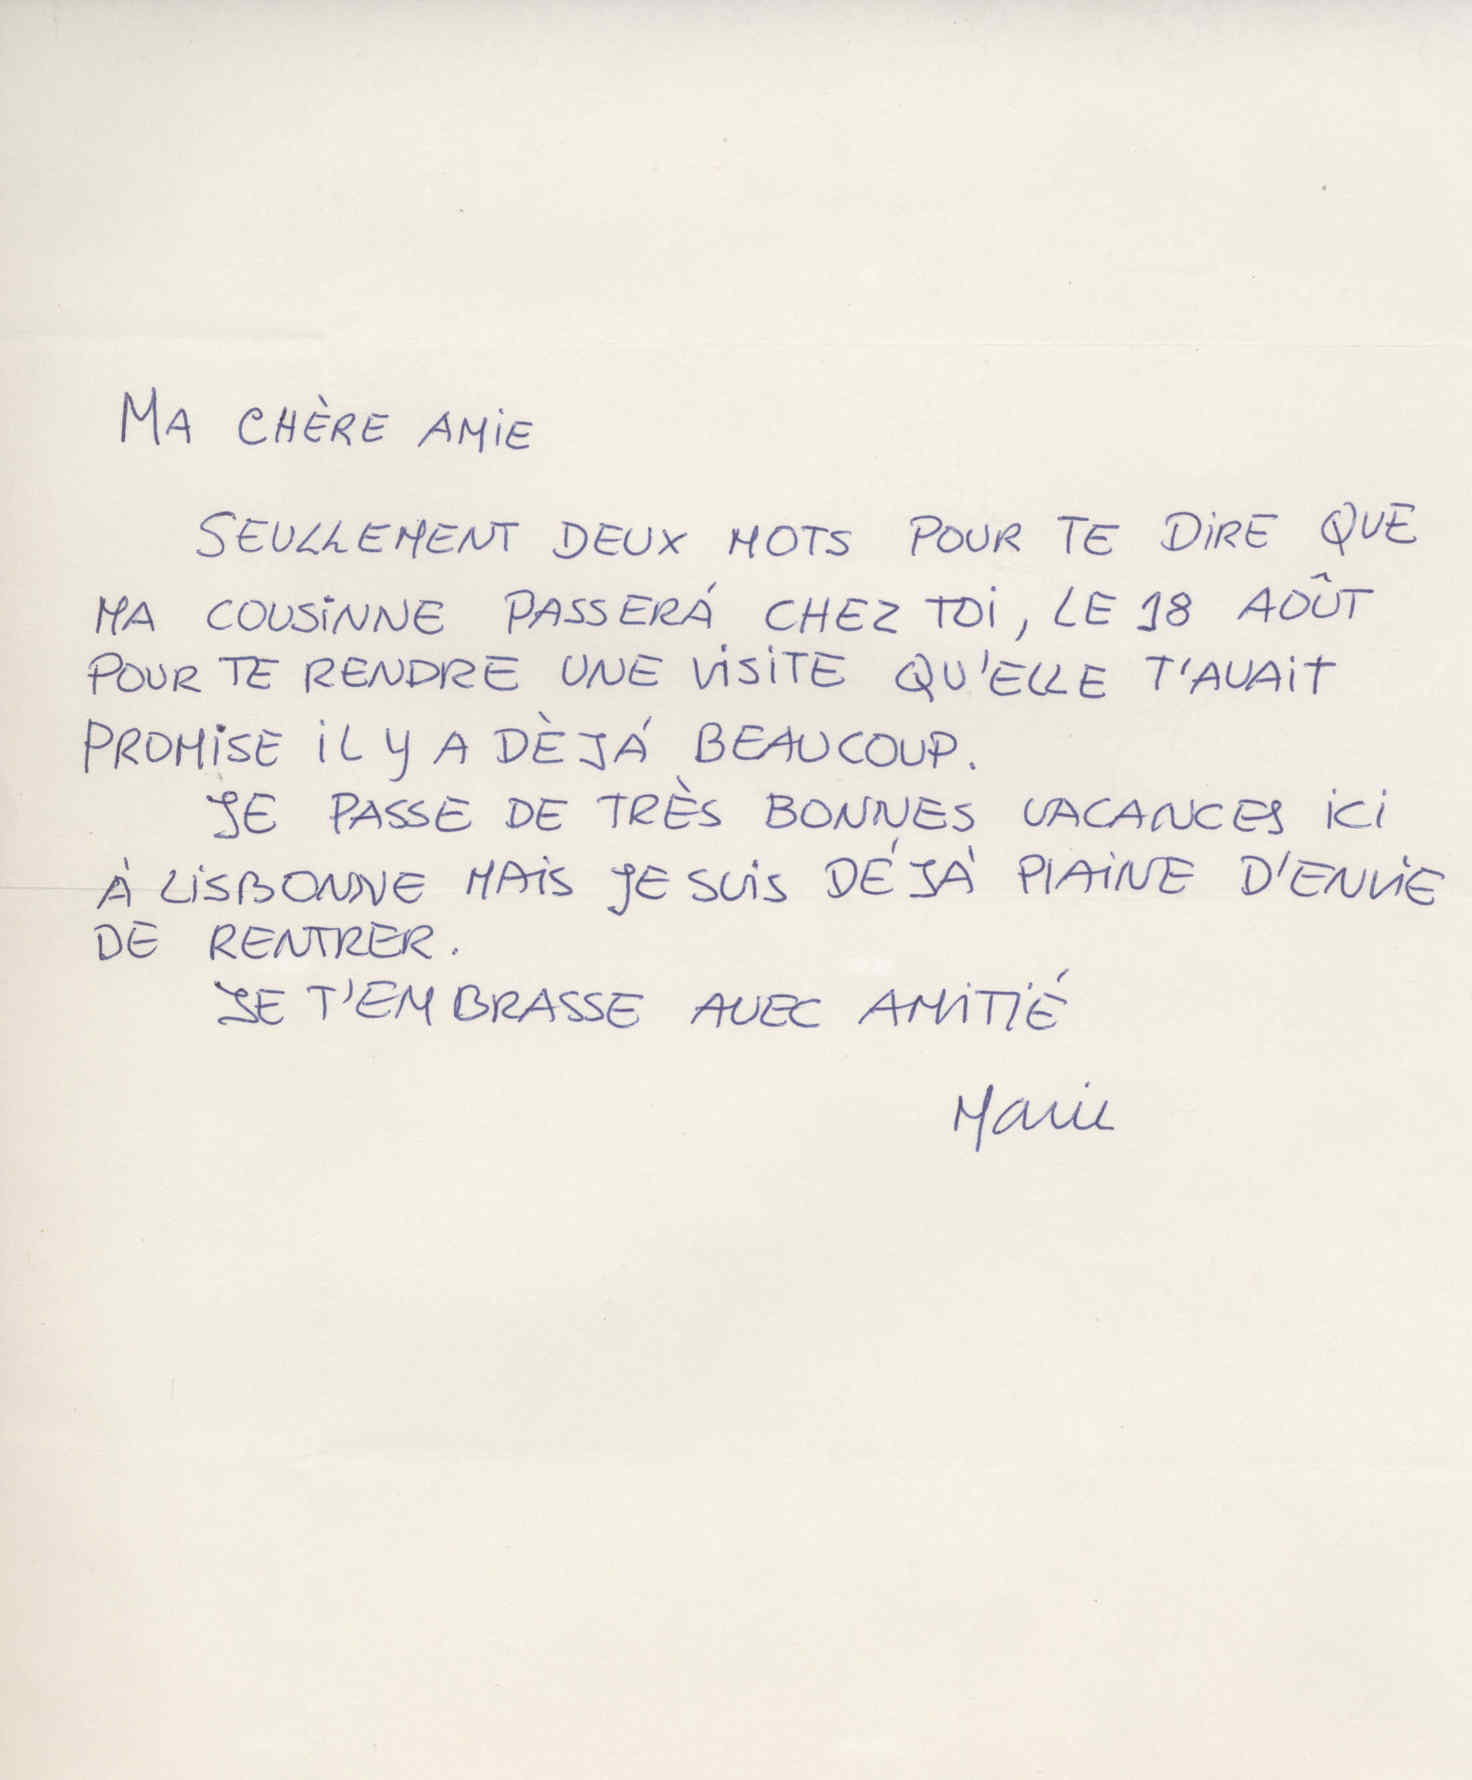 MA CHÈRE AMIE
SEULLEMENT DEUX MOTS POUR TE DIRE QUE
MA COUSINNE PASSERÁ CHEZ TOI, LE 18 AOÛT
POUR TE RENDRE UNE VISITE QU'ELLE T'AVAIT
PROMISE IL Y A DÈJÁ BEAUCOUP.
JE PASSE DE TRÈS BONNES VACANCES ICI
À LISBONNE MAIS JE SUIS DÉJÀ PLAINE D'ENVIE
DE RENTRER.
JE T'EMBRASSE AVEC AMITIÉ
Marie